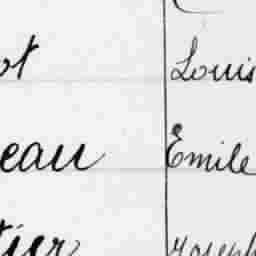 ot Louis
eau Emile
tier Joseph